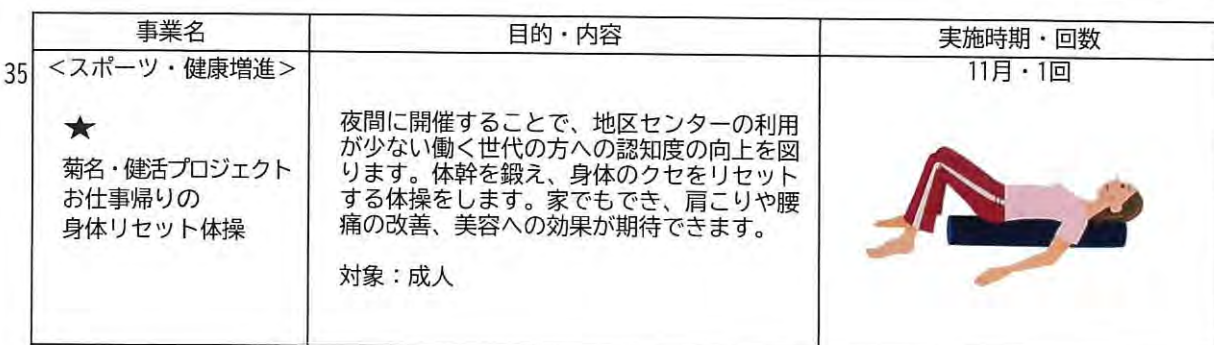 事業名
目的・内容
実施時期・回数
35
<スポーツ・健康増進>
★
菊名・健活プロジェクト
お仕事帰りの
身体リセット体操
夜間に開催することで、地区センターの利用
が少ない働く世代の方への認知度の向上を図
ります。体幹を鍛え、身体のクセをリセット
する体操をします。家でもでき、肩こりや腰
痛の改善、美容への効果が期待できます。
対象：成人
11月・1回